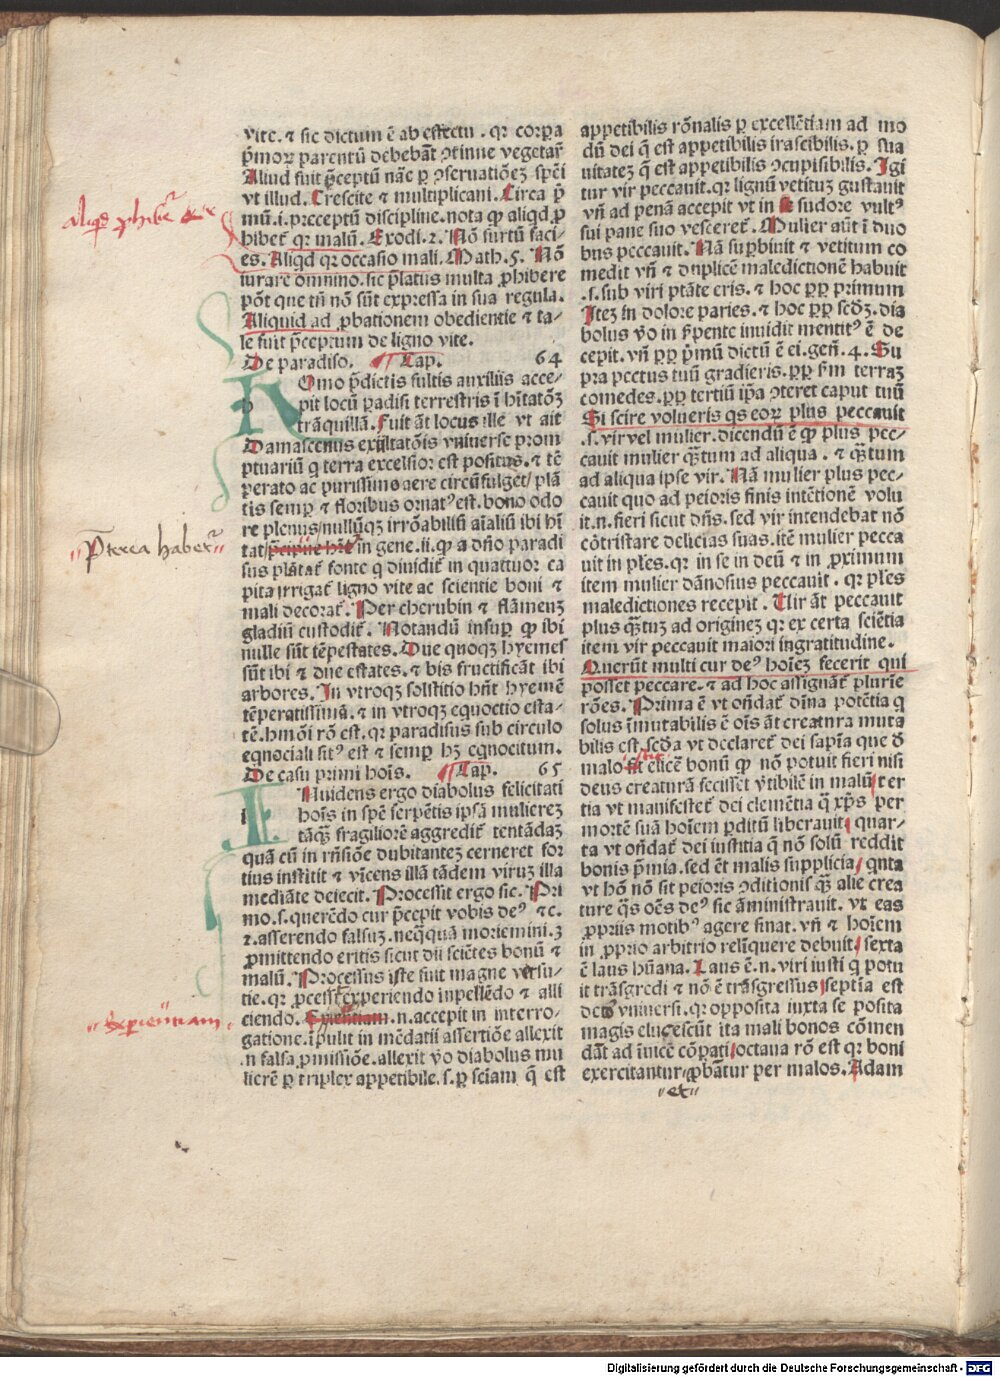 vite. ⁊ sic dictum ē ab effectu. qꝛ corpa
p̄moꝝ parentū debebāt ꝯtinue vegetari
Aliud fuit p̄ceptū nāe ꝑ ꝯseruatiōeꝫ spēi
vt illud. Crescite ⁊ multiplicani. Circa p̄
mū .i. preceptū discipline. nota ꝙ aliqd ꝓ
hibet᷑ qꝛ malū. Exodi. 2. Nō furtū faci-
es. Aliqd qꝛ occasio mali. Math. 5. Nō
iurare omnino. sic p̄latus multa ꝓhibere
pōt que tn̄ nō sūt expressa in sua regula.
Aliquid ad ꝓbationem obedientie ⁊ ta-
le fuit p̄ceptum de ligno vite.
De paradiso. ¶ Cap. 64
HOmo p̄dictis fultis auxiliis acce-
pit locū ꝑadisi terrestris ī hītatōꝫ
trāquillā. Fuit āt locus ille vt ait
Damascenus exultatōis vniuerse prom
ptuariū q terra excelsior est positus. ⁊ tē
perato ac purissimo aere circūfulget/ plā
tis semꝑ ⁊ floribus ornatꝰ est. bono odo
re plenus/nullūqꝫ irrōabiliū aīaliū ibi hī
tat/ in gene. ii. ꝙ a dn̄o paradi
sus plātat᷑ fonte q diuidit᷑ in quattuor ca
pita irrigat᷑ ligno vite ac scientie boni ⁊
mali decorat᷑. Per cherubin ⁊ flāmenꝫ
gladiū custodit᷑. Notandū insuꝑ ꝙ ibi
nulle sūt tēpestates. Due quoqꝫ hyemes
sūt ibi ⁊ due estates. ⁊ bis fructificāt ibi
arbores. In vtroqꝫ solstitio hn̄t hyemē
tēperatissimā. ⁊ in vtroqꝫ equoctio esta-
tē. hmōi rō est. qꝛ paradisus sub circulo
eqnociali sitꝰ est ⁊ semꝑ hꝫ eqnocitum.
De casu primi hoīs. ¶ Cap. 65
INuidens ergo diabolus felicitati
hoīs in spē serpētis ipsā muliereꝫ
tāqꝫ fragiliorē aggredit᷑ tentādaꝫ
quā cū in rn̄siōe dubitanteꝫ cerneret for
tius institit ⁊ vīcens illā tādem viruꝫ illa
mediāte deiecit. Processit ergo sic. Pri
mo .s. querēdo cur p̄cepit vobis deꝰ ⁊c.
2. asserendo falsuꝫ. neqͣquā moriemini. 3
ꝓmittendo eritis sicut dii sciētes bonū ⁊
malū. Processus iste fuit magne versu-
tie. qꝛ ꝓcessit experiendo inpellēdo ⁊ alli
ciendo. .n. accepit in interro-
gatione. īpulit in mēdatii assertiōe allexit
.n falsa ꝓmissiōe. allexit ꝟo diabolus mu
lierē ꝑ triplex appetibile. s. ꝑ sciam q̄ est
appetibilis rōnalis ꝑ excellētiam ad mo
dū dei q̄ est appetibilis irascibilis. ꝑ sua
uitateꝫ q̄ est appetibilis ꝯcupisibilis. Igi
tur vir peccauit. qꝛ lignū vetituꝫ gustauit
vn̄ ad penā accepit vt in sudore vultꝰ
sui pane suo vesceret᷑. Mulier aūt ī duo
bus peccauit. Nā suꝑbiuit ⁊ vetitum co
medit vn̄ ⁊ duplicē maledictionē habuit
.s. sub viri ptāte eris. ⁊ hoc ꝓꝑ primum
Iteꝫ in dolore paries. ⁊ hoc ꝓꝑ scd̄ꝫ. dia
bolus ꝟo in ẜpente inuidit mentitꝰ ē de
cepit. vn̄ ꝓꝑ p̄mū dictū ē ei. gen̄. 4. Su
pra pectus tuū gradieris. ꝓꝑ ẜm terraꝫ
comedes. ꝓꝑ tertiū ip̄a ꝯteret caput tuū
Si scire volueris qs eoꝝ plus peccauit
.s. vir vel mulier. dicendū ē ꝙ plus pec-
cauit mulier qͣꝫtum ad aliqua. ⁊ qͣꝫtum
ad aliqua ipse vir. Nā mulier plus pec-
cauit quo ad peioris finis intētionē volu
it .n. fieri sicut dn̄s. sed vir intendebat nō
cōtristare delicias suas. itē mulier pecca
uit in pl̄es. qꝛ in se in deū ⁊ in ꝓximum
item mulier dānosius peccauit. qꝛ pl̄es
maledictiones recepit. Uir āt peccauit
plus qͣꝫtuꝫ ad origineꝫ qꝛ ex certa sciētia
item vir peccauit maiori ingratitudine.
Querūt multi cur deꝰ hoīeꝫ fecerit qui
posset peccare. ⁊ ad hoc assignāt᷑ plurīe
rōes. Prima ē vt on̄dat᷑ dīna potētia q
solus īmutabilis ē oīs āt creatura muta
bilis est. scd̄a vt declaret᷑ dei sapīa que d̄
malo elicē bonū ꝙ nō potuit fieri nisi
deus creaturā fecisset ꝟtibilē in malū/ ter
tia vt manifestet᷑ dei clemētia q̄ xp̄s per
mortē suā hoīem ꝑditū liberauit/ quar-
ta vt on̄dat᷑ dei iustitia q̄ nō solū reddit
bonis p̄mia. sed ēt malis supplicia/ qnta
vt hō nō sit peioris ꝯditionis qͣꝫ alie crea
ture qͣs oēs deꝰ sic āministrauit. vt eas
ꝓpriis motibꝰ agere sinat. vn̄ ⁊ hoīem
in ꝓprio arbitrio relīquere debuit/ sexta
ē laus hūana. Laus ē .n. viri iusti q potu
it trāsgredi ⁊ nō ē trāsgressus/ septīa est
vniuersi. qꝛ opposita iuxta se posita
magis elucescūt ita mali bonos cōmen
dāt ad īuicē cōpati/ octaua rō est qꝛ boni
exercitantur/ ꝓbātur per malos. Adam
"et"
aliqd ꝓhibet᷑
"P̄terea habet᷑"
"Experientiam"
Digitalisierung gefördert durch die Deutsche Forschungsgemeinschaft - DFG